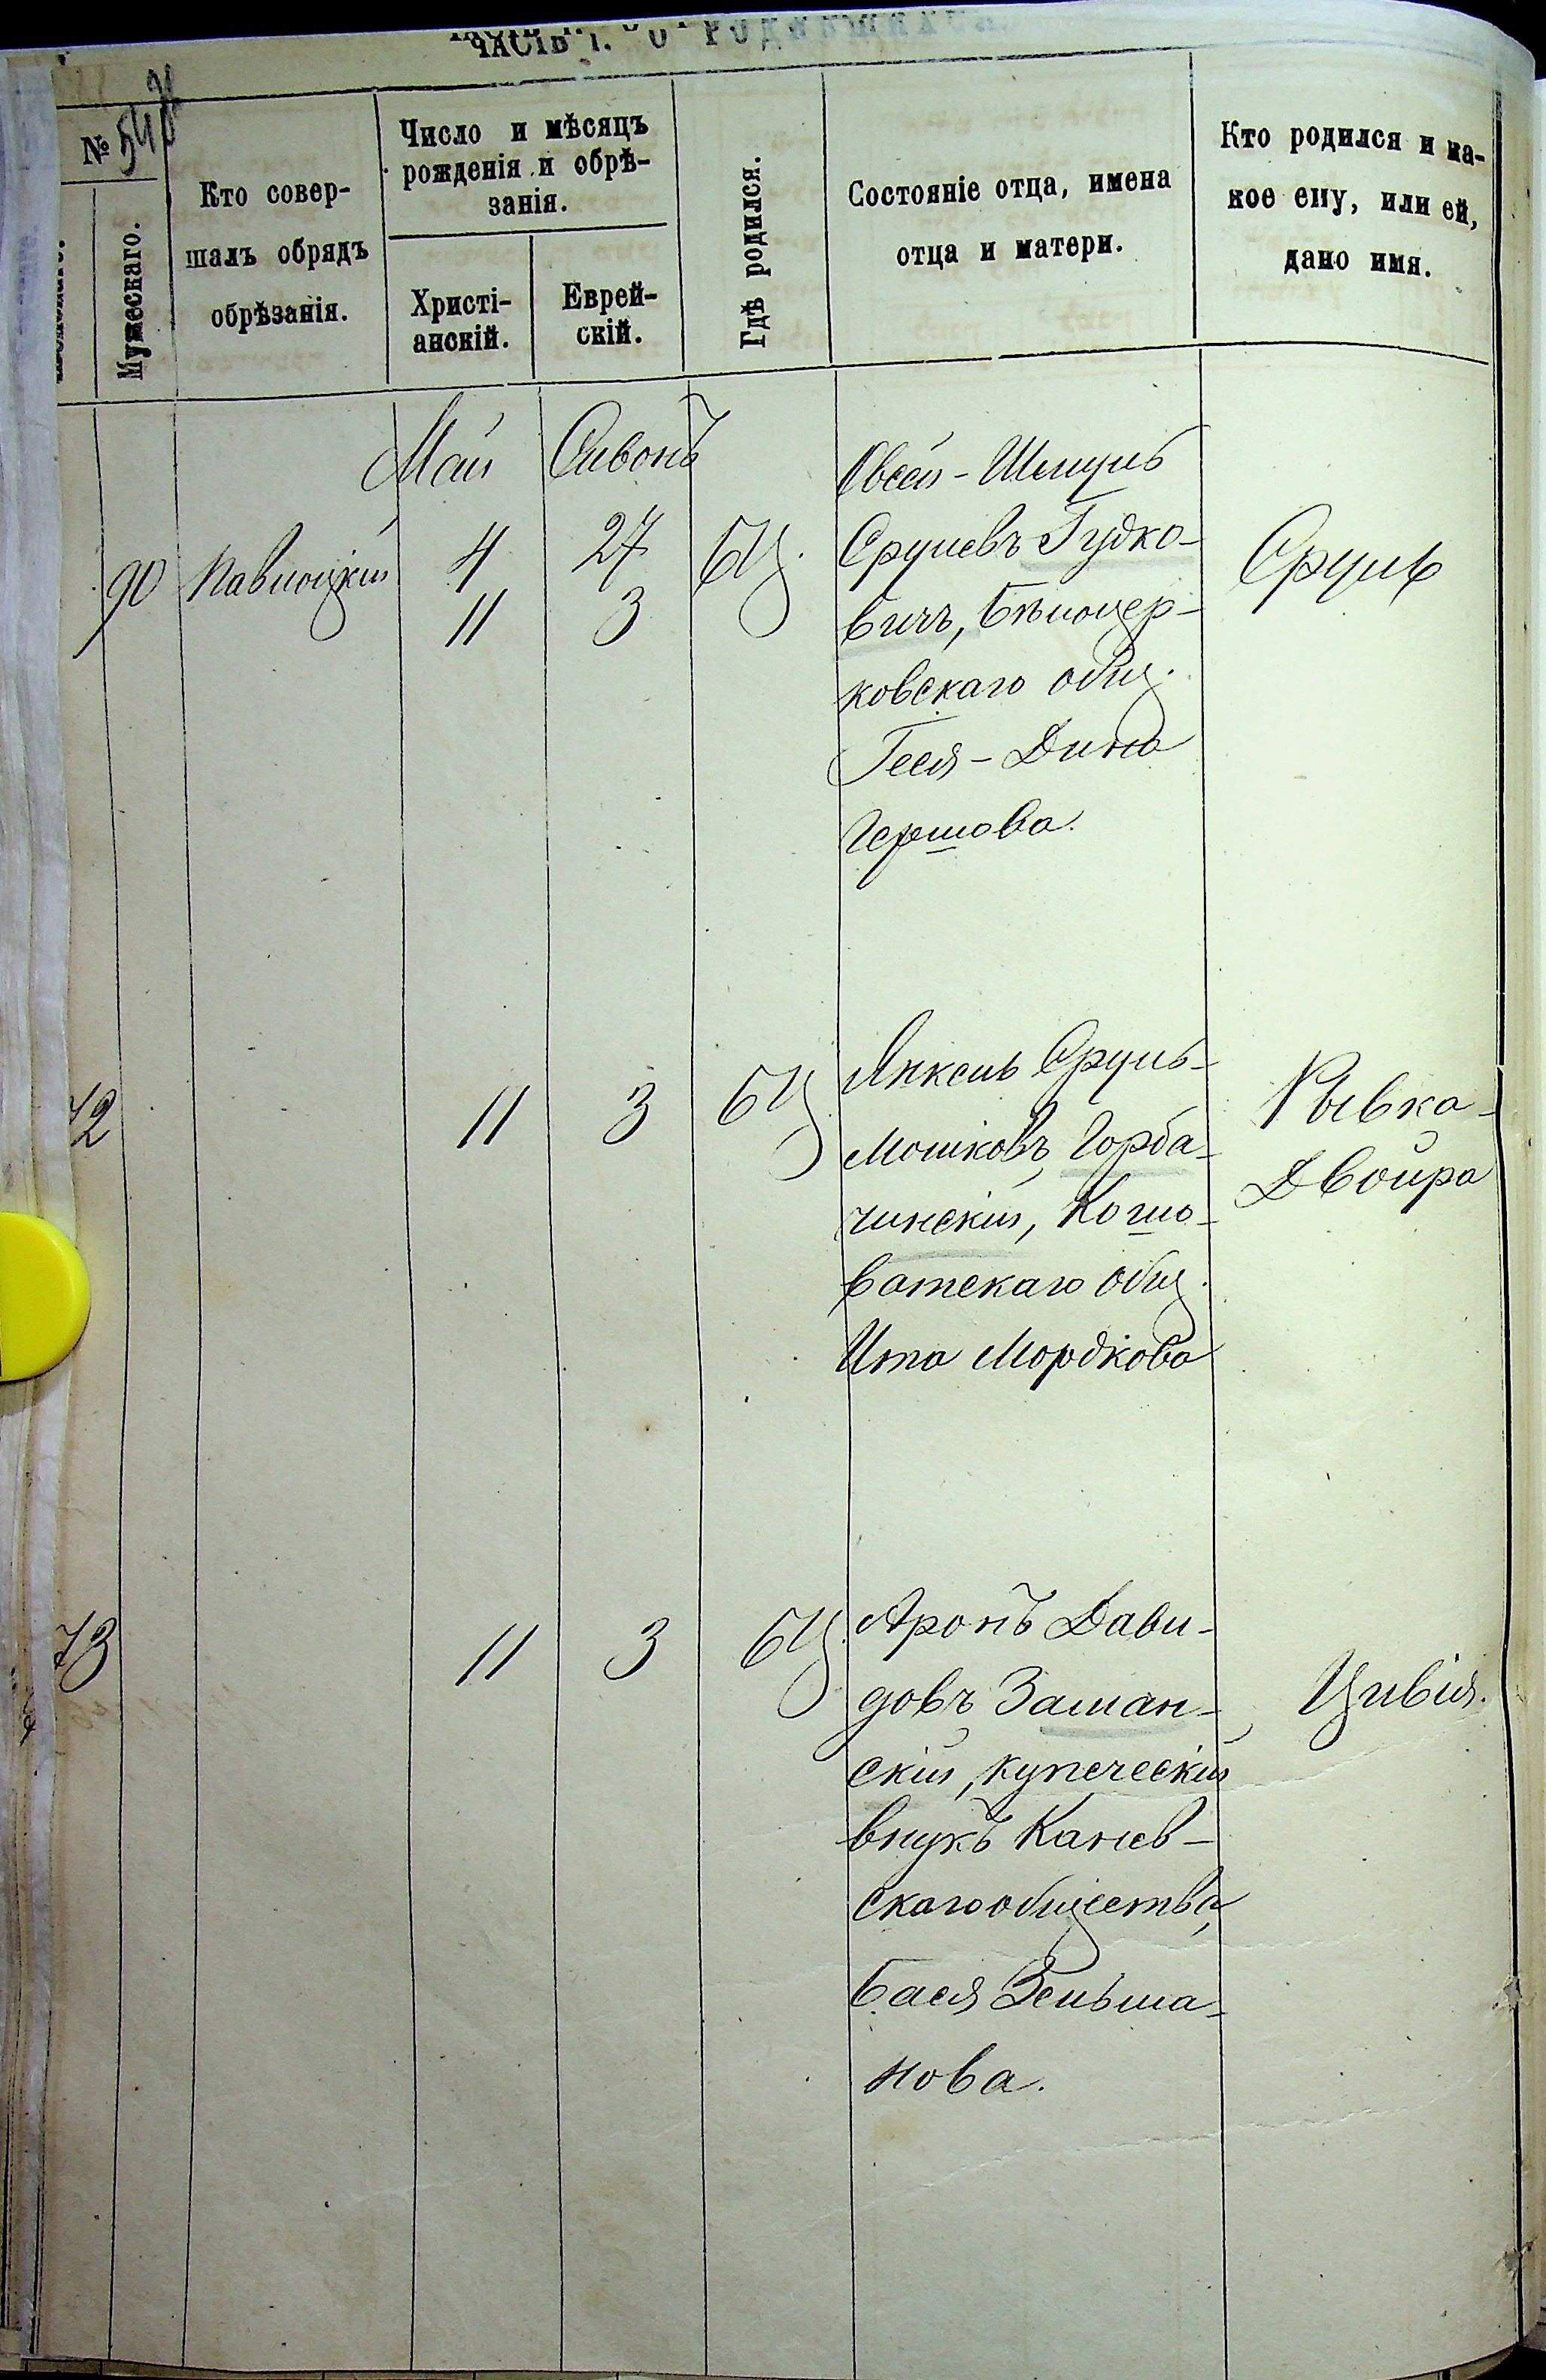 ЧАСТЬ I. О РОДИВШИХСЯ
№
Мужескаго.
Кто совер-
шалъ обрядъ
обрѣзанія.
Число и мѣсяцъ
рожденія и обрѣ-
занія.
Христі-
анскій.
Еврей-
скій.
Гдѣ родился.
Состояніе отца, имена
отца и матери.
Кто родился и ка-
кое ему, или ей,
дано имя.
Май Сивонъ
90 Павлоцкій 4 27 БЦ.
11 3
Овсей-Шмуль
Срулевъ Гудко-
вичъ, Бѣлоцер-
ковскаго общ.
Геся-Дина
Гершова.
Сруль
72 11 3 БЦ
Янкель Сруль-
Мошковъ Горба-
чинскій, Кошо-
ватскаго общ.
Ита Мордкова
Рывка-
Двойра
73 11 3 БЦ.
Аронъ Дави-
довъ Заман-
скій, купеческій
внукъ Канев-
скаго общества,
Бася Зельма-
нова.
Цивія.